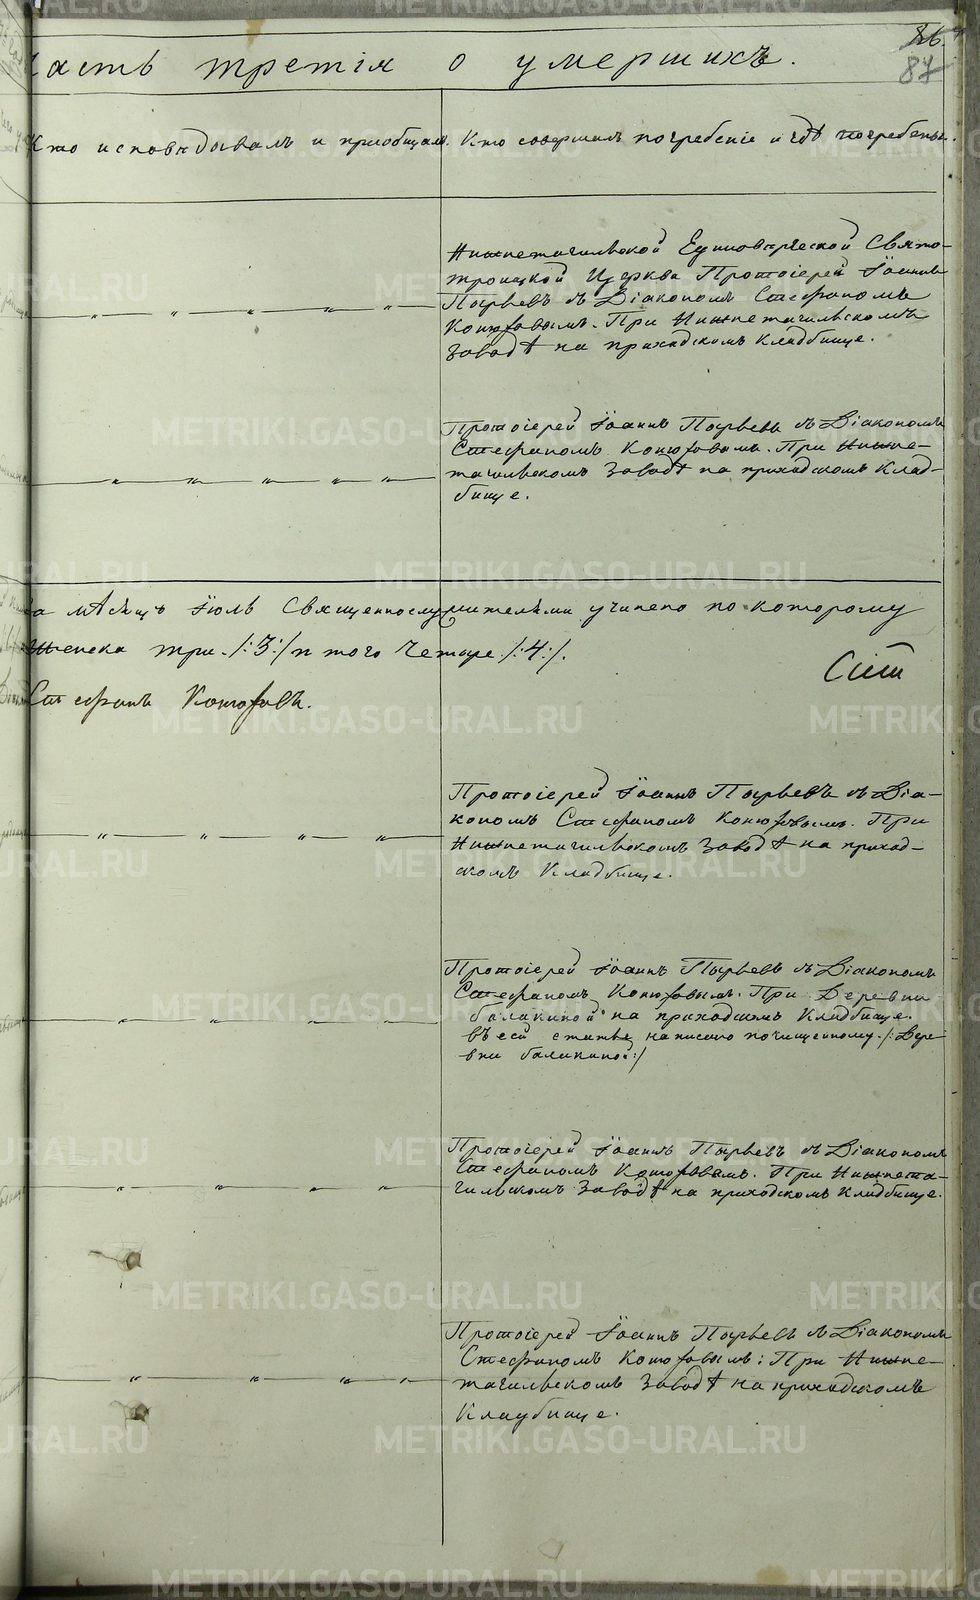 86.
87
часть третія о умершихъ.
Кто исповѣдывалъ и приобщалъ. Кто совершилъ погребеніе и гдѣ погребены.
Нижнетагильской Единовѣрческой Свято-
троицкой Церкви Протоіерей Іоаннъ
Пырьевъ съ Діакономъ Стефаномъ
Конюховымъ. При Нижнетагильскомъ
заводѣ на приходскомъ кладбище.
Протоіерей Іоаннъ Пырьевъ съ Діакономъ
Стефаномъ Конюховымъ. При Нижне-
тагильскомъ заводѣ на приходскомъ Клад-
бище.
за мѣсяцъ Іюль Священнослужителями учинено по которому
женска три /:3:/ и того Четыре /:4:/.
Стефанъ Конюховъ.
Протоіерей Іоаннъ Пырьевъ съ Діа-
кономъ Стефаномъ Конюховымъ. При
Нижнетагильскомъ заводѣ на приход-
скомъ Кладбище.
Протоіерей Іоаннъ Пырьевъ съ Діакономъ
Стефаномъ Конюховымъ. При Деревни
балакиной на приходскомъ Кладбище.
въ сей статье написано почищенному /:Дере
вни балакиной:/
Протоіерей Іоаннъ Пырьевъ съ Діакономъ
Стефаномъ Конюховымъ. При Нижнета-
гильскомъ заводѣ на приходскомъ Кладбище.
Протоіерей Іоаннъ Пырьевъ съ Діакономъ
Стефаномъ Конюховымъ: При Нижне-
тагильскомъ заводѣ на приходскомъ
Кладбище.
METRIKI.GASO-URAL.RU